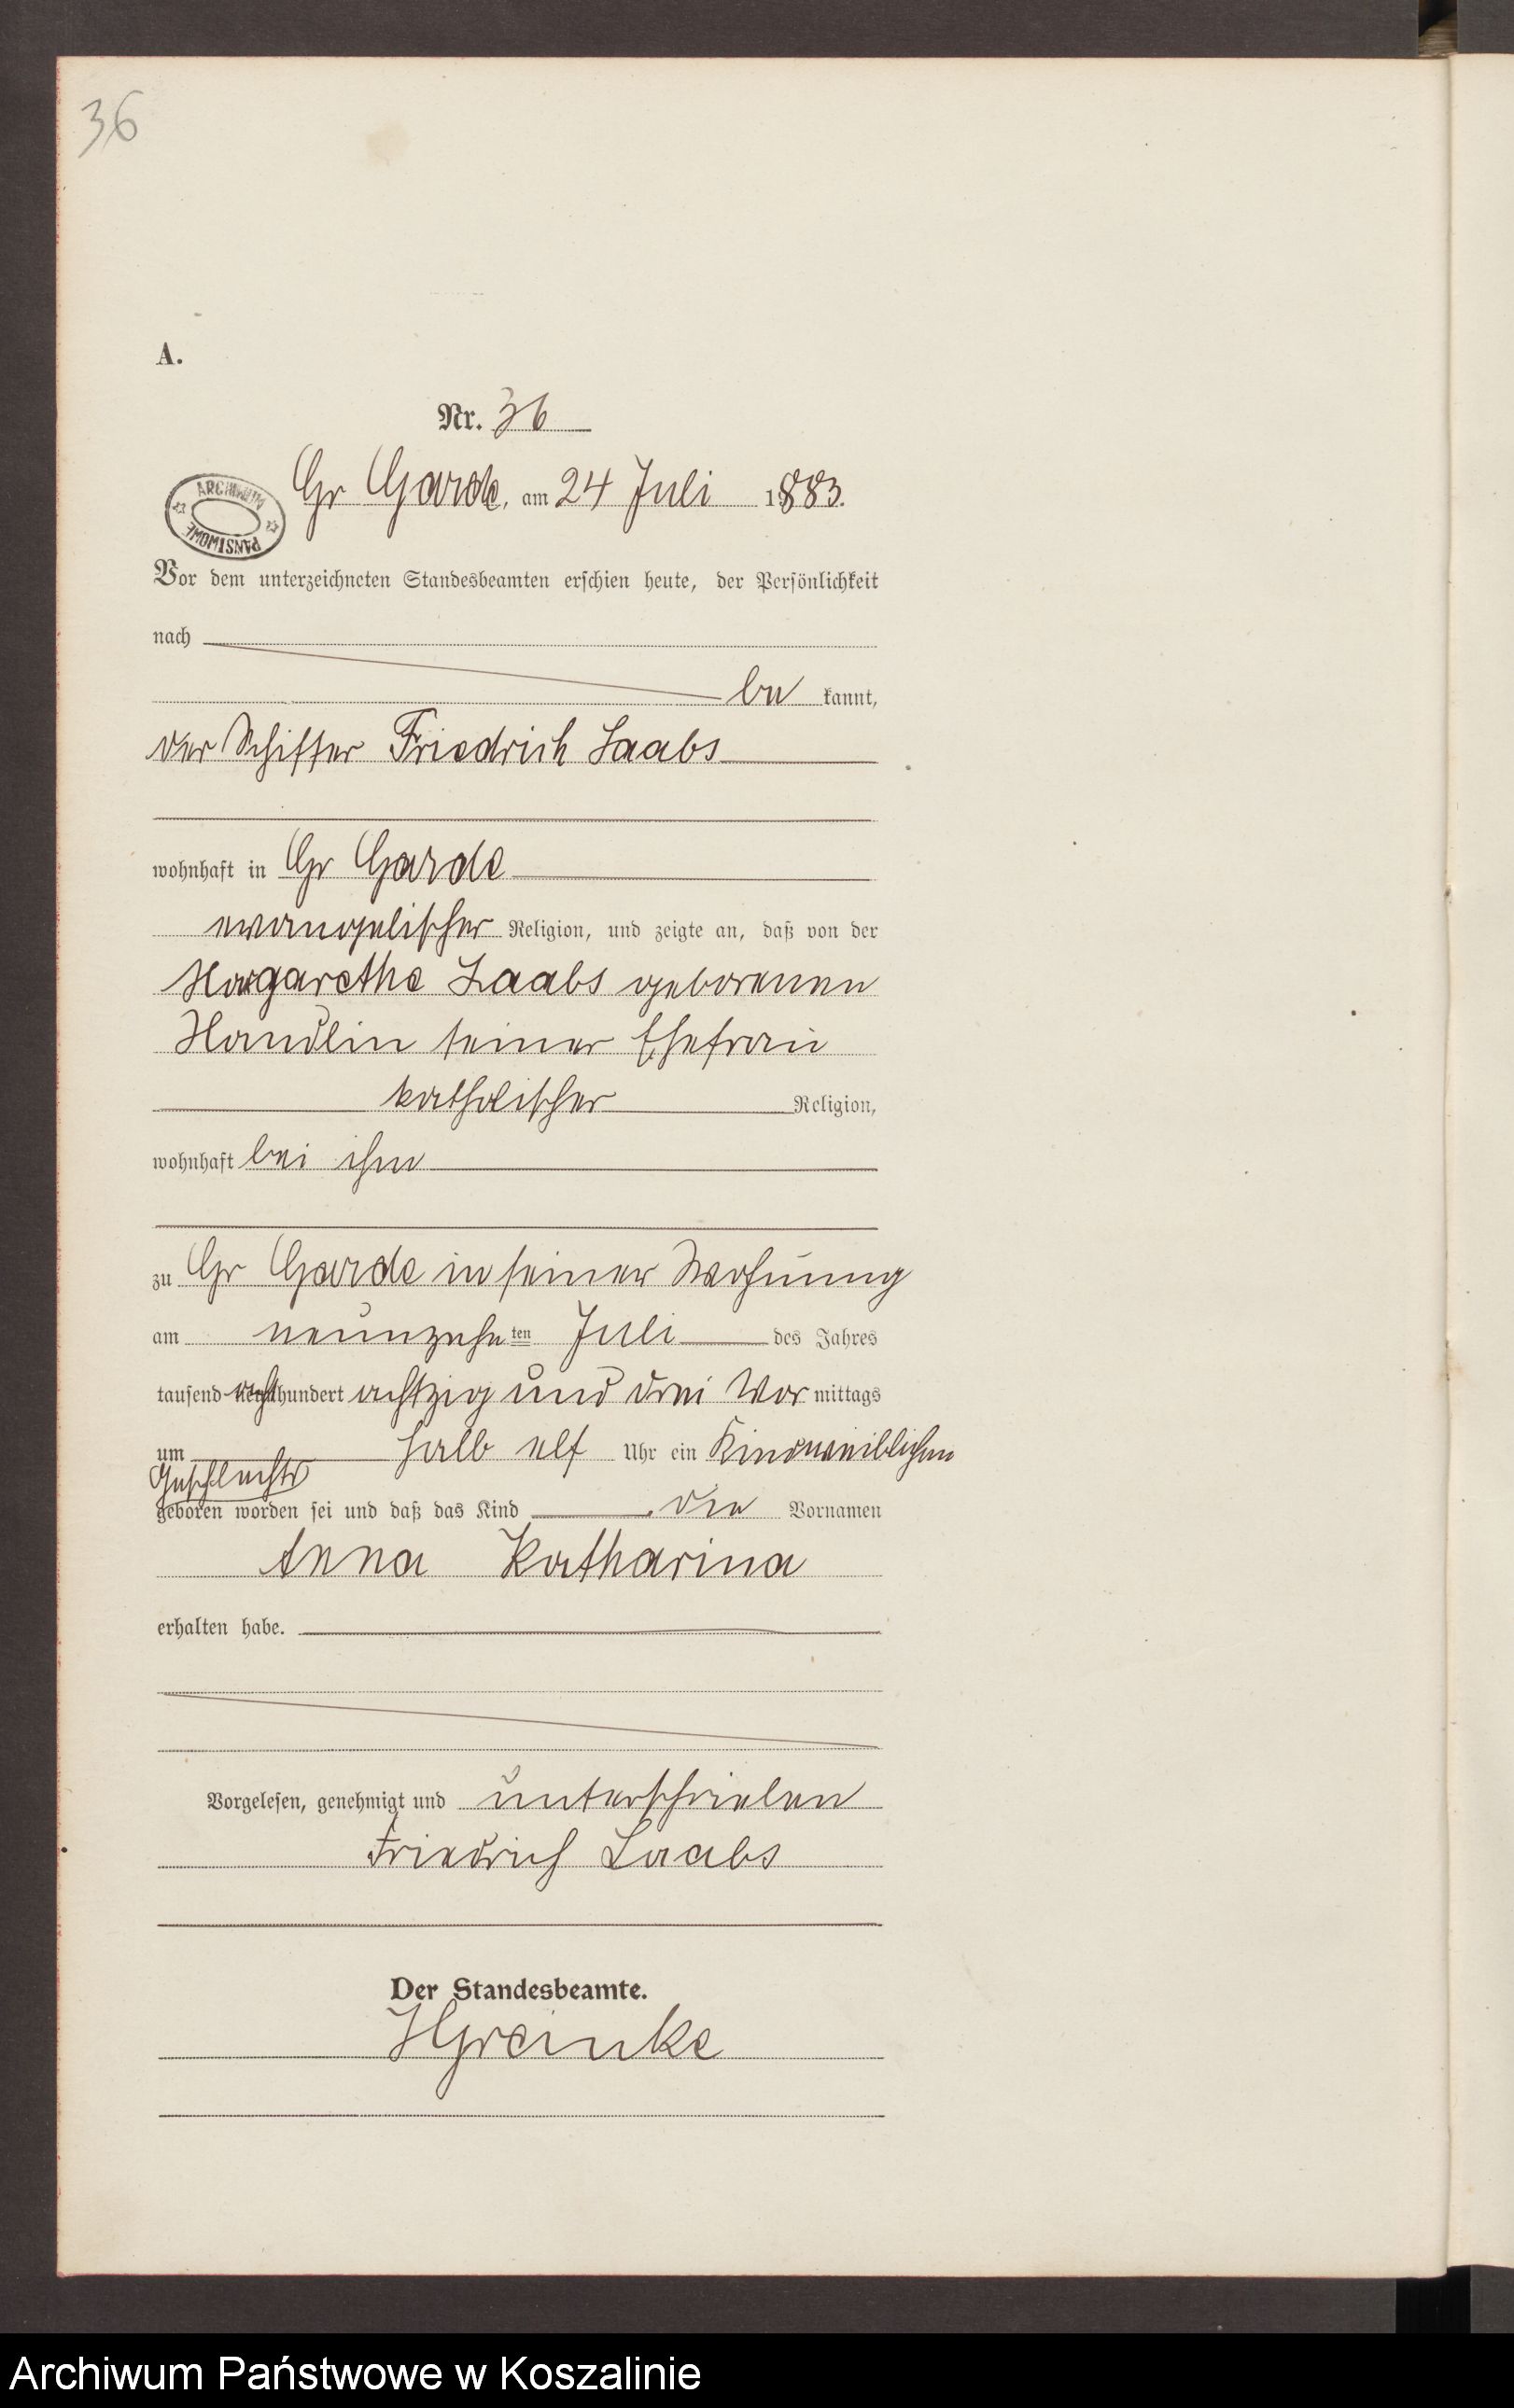 36
A.
Nr. 36
ARCHIWUM PAŃSTWOWE
Gr Garde, am 24 Juli 1883.
Vor dem unterzeichneten Standesbeamten erschien heute, der Persönlichkeit
nach
be kannt,
der Schiffer Friedrich Laabs
wohnhaft in Gr Garde
evangelischer Religion, und zeigte an, daß von der
Margarethe Laabs geborenen
Handlin seiner Ehefrau
katholischer Religion,
wohnhaft bei ihm
zu Gr Garde in seiner Wohnung
am neunzehn ten Juli des Jahres
tausend acht hundert achtzig und drei Vor mittags
um halb elf Uhr ein Kind weiblichen
Geschlechts
geboren worden sei und daß das Kind die Vornamen
Anna Katharina
erhalten habe.
Vorgelesen, genehmigt und unterschrieben
Friedrich Laabs
Der Standesbeamte.
HGreinke
Archiwum Państwowe w Koszalinie